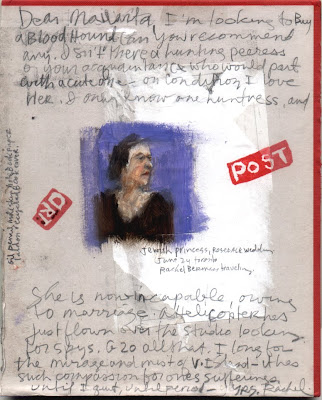 Dear Mailarta, I'm looking to Buy
a Blood Hound. Can you recommend
any. Isn't there a hunting peeress
of your acquaintance who would part
with a cute one - on condition I love
Her. I only know one huntress, and
POST
Jewish princess, Rosedale wedding
June 24 toronto
Rachel Berman traveling
She is now incapable, owing
to marriage. A Helicopter has
just flown over the studio looking
for Spys. G20 all that. I long for
the mirage and mist of V.I.
such compassion for one's suffering
until I quit
Yrs, Rachel